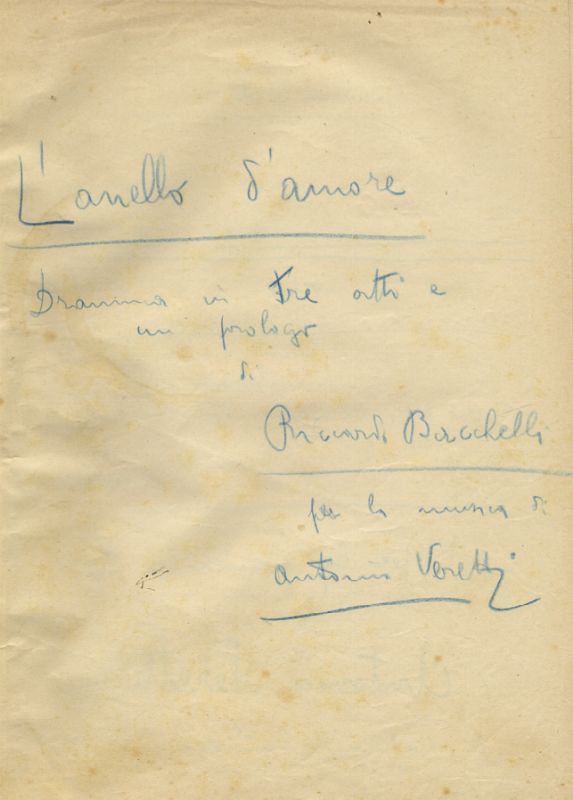 L'anello d'amore
Dramma in tre atti e
un prologo
di
Riccardo Bacchelli
per la musica di
Antonio Veretti